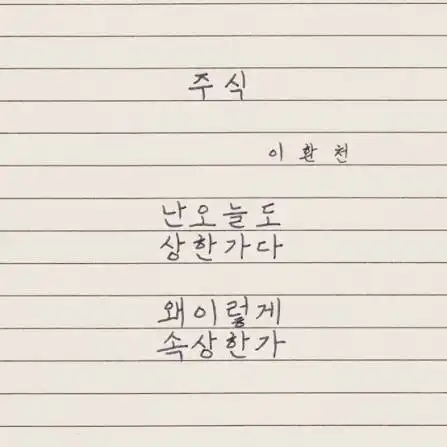 주식
이환천
난오늘도
상한가다
왜이렇게
속상한가